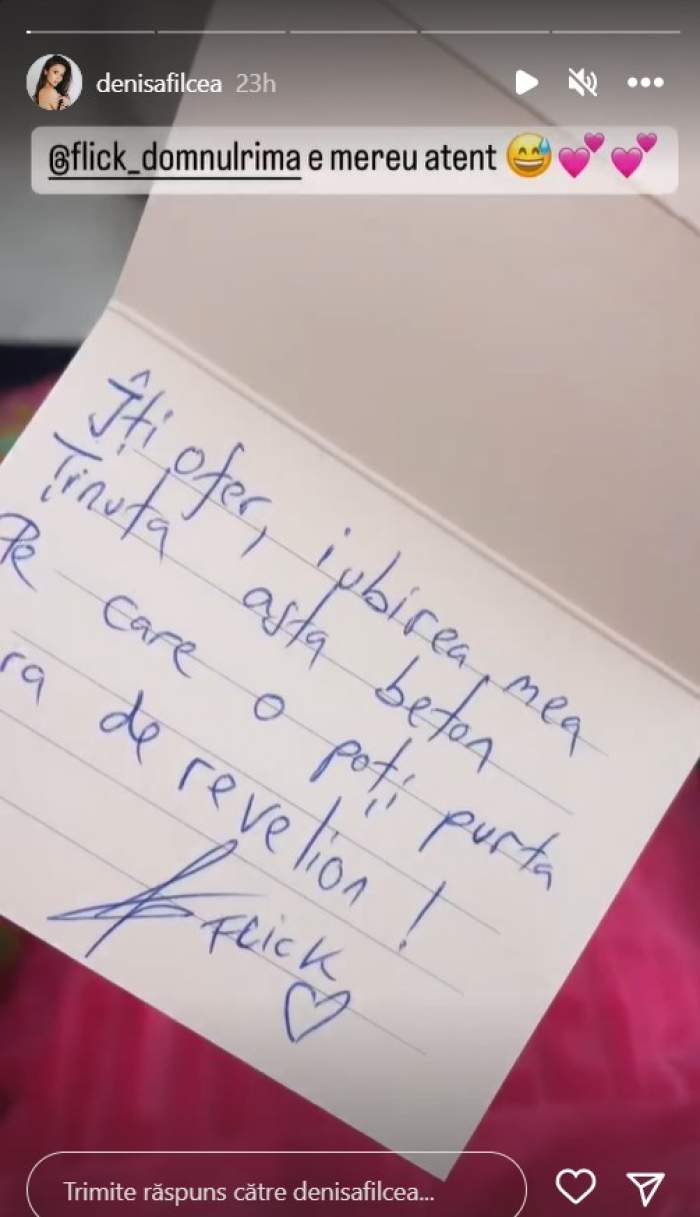 denisafilcea 23h
@flick_domnulrima e mereu atent 😅💕💕
Îți ofer, iubirea mea
Ținuta asta beton
Pe care o poți purta
ra de revelion!
FLICK
Trimite răspuns către denisafilcea...